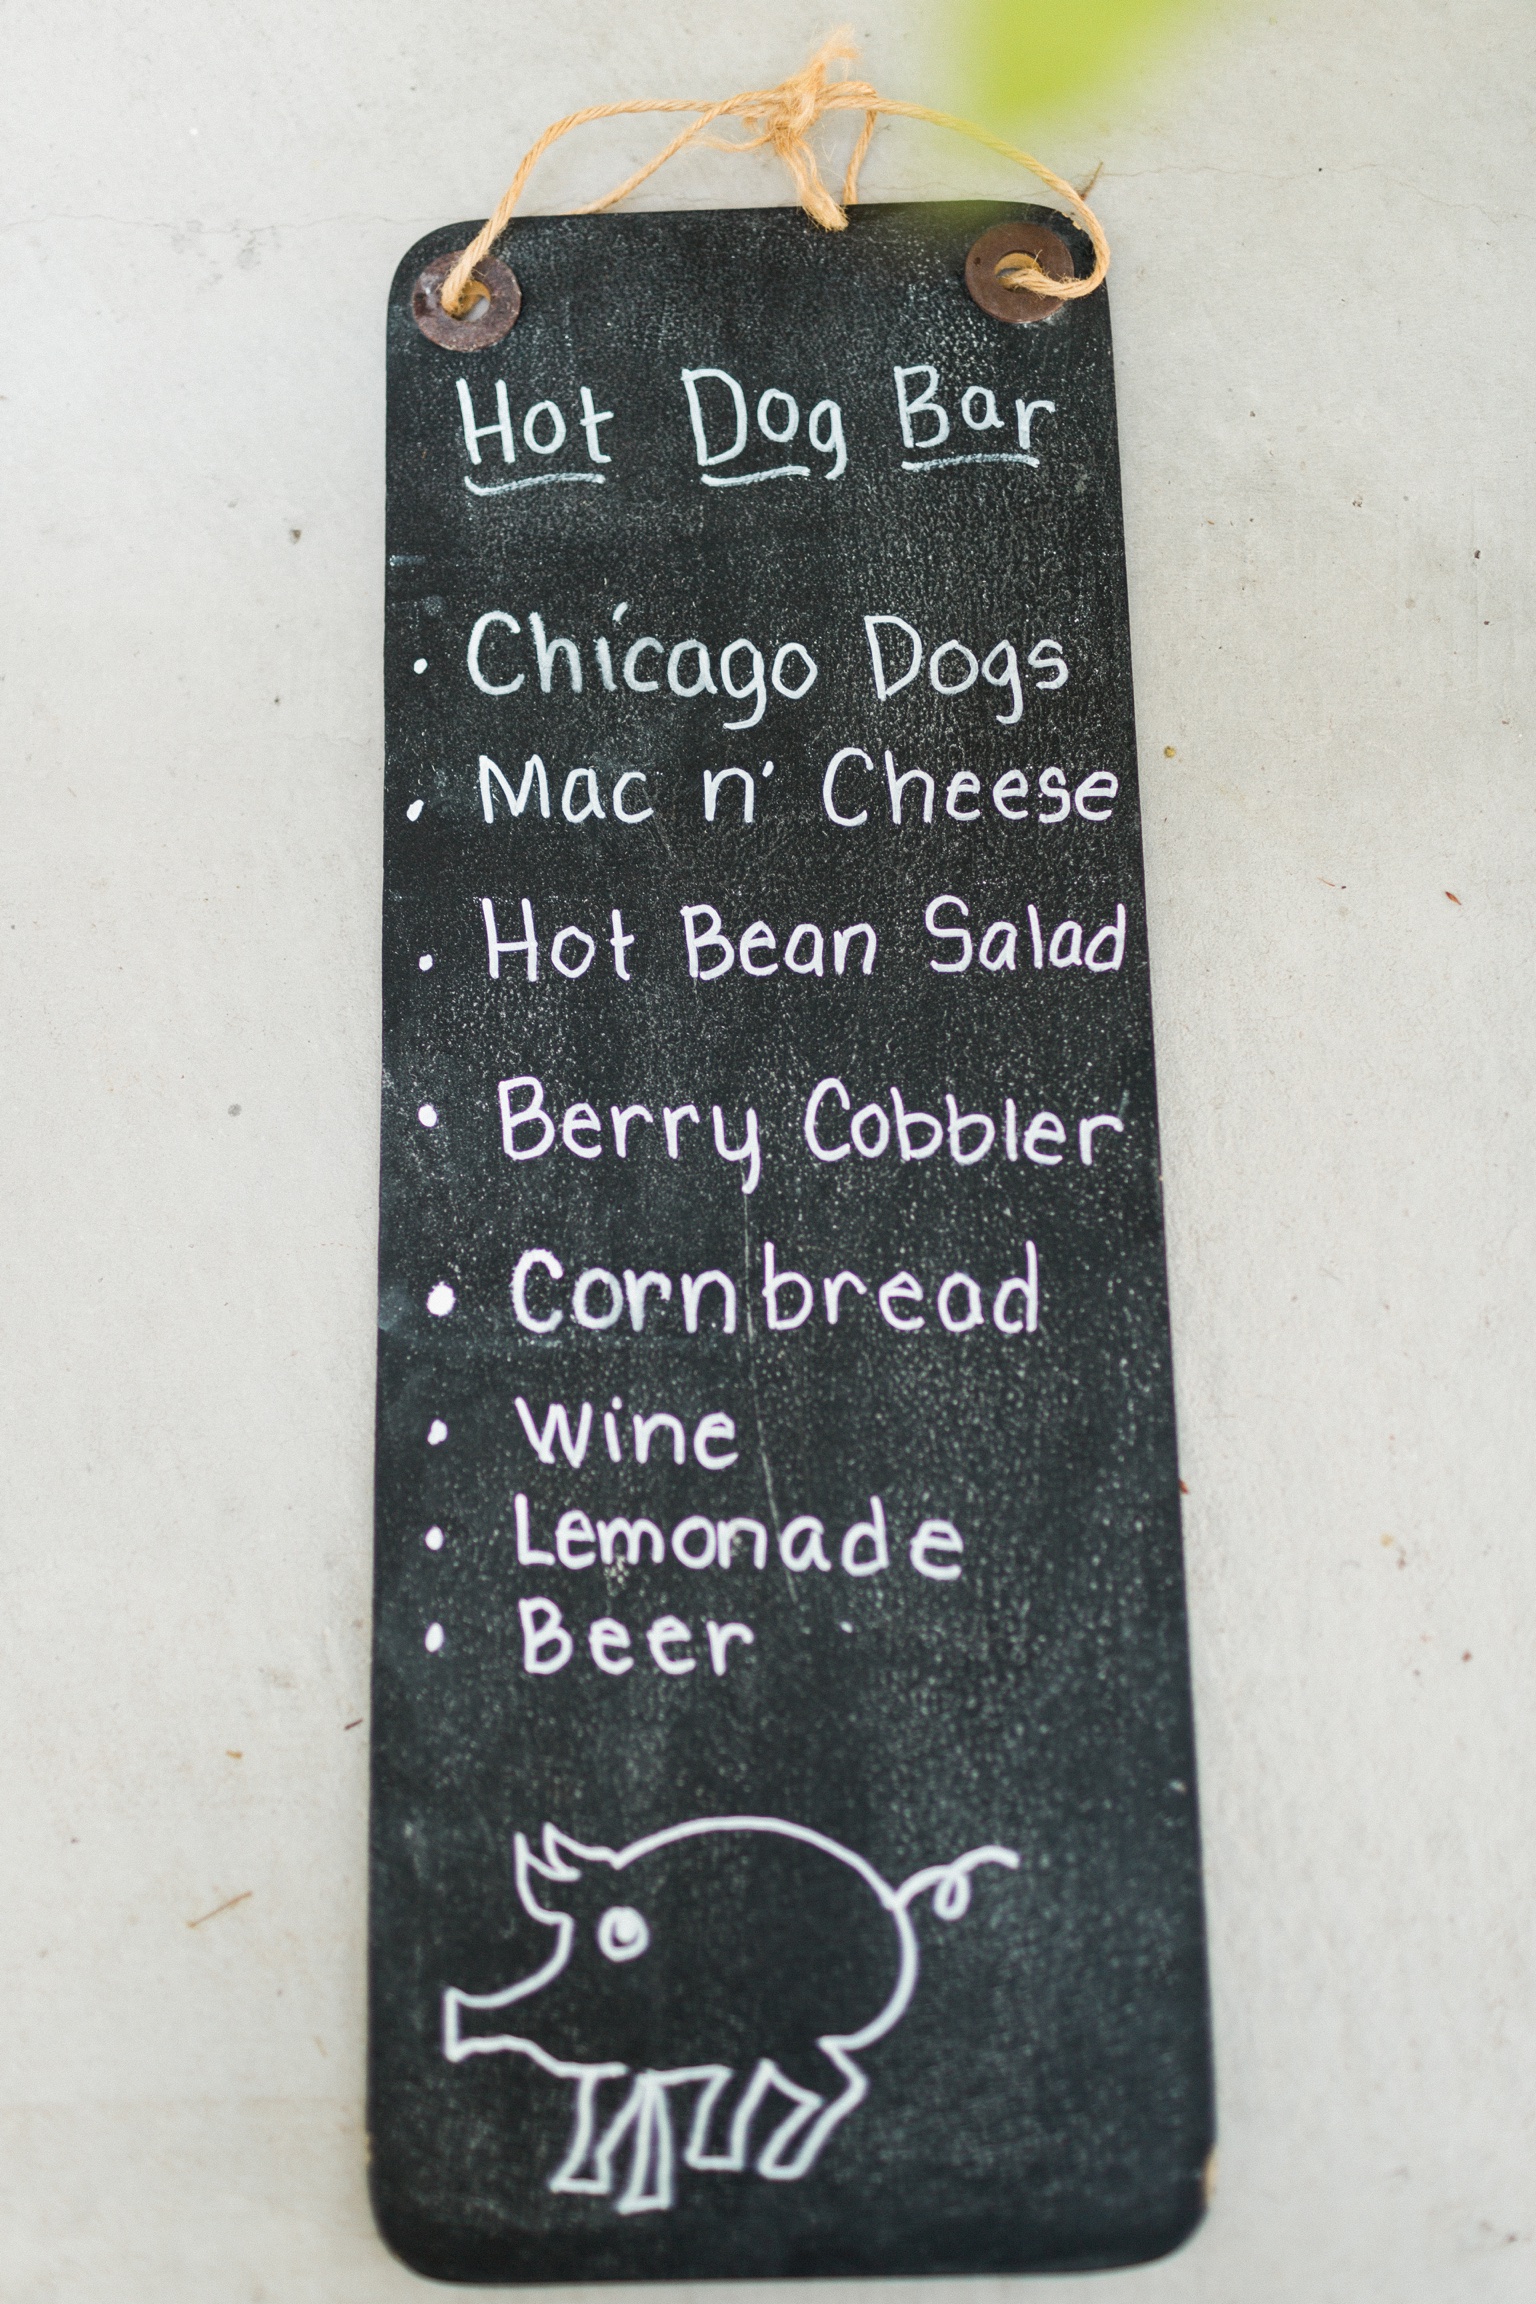 Hot Dog Bar
• Chicago Dogs
• Mac n' Cheese
• Hot Bean Salad
• Berry Cobbler
• Cornbread
• Wine
• Lemonade
• Beer